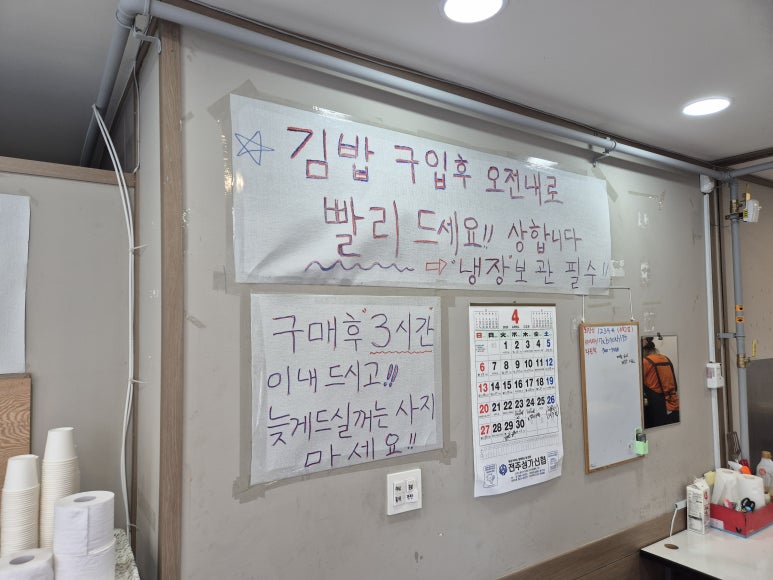 ☆ 김밥 구입후 오전내로
빨리 드세요!! 상합니다
⇨ "냉장"보관 필수!!
구매후 "3시간"
이내 드시고!!
늦게드실꺼는 사지
마세요!!
4
日 月 火 水 木 金 土
1 2 3 4 5
6 7 8 9 10 11 12
13 14 15 16 17 18 19
20 21 22 23 24 25 26
27 28 29 30
전주성가신협